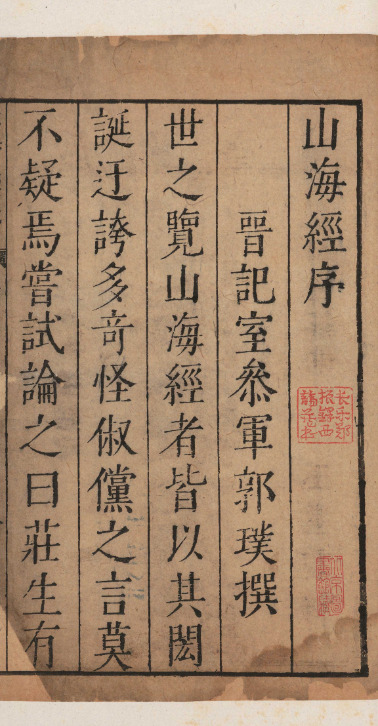 山海經序
晉記室叅軍郭璞撰
世之覽山海經者皆以其閎
誕迂誇多奇怪俶儻之言莫
不疑焉嘗試論之曰莊生有
長樂鄭
振鐸西
諦藏書